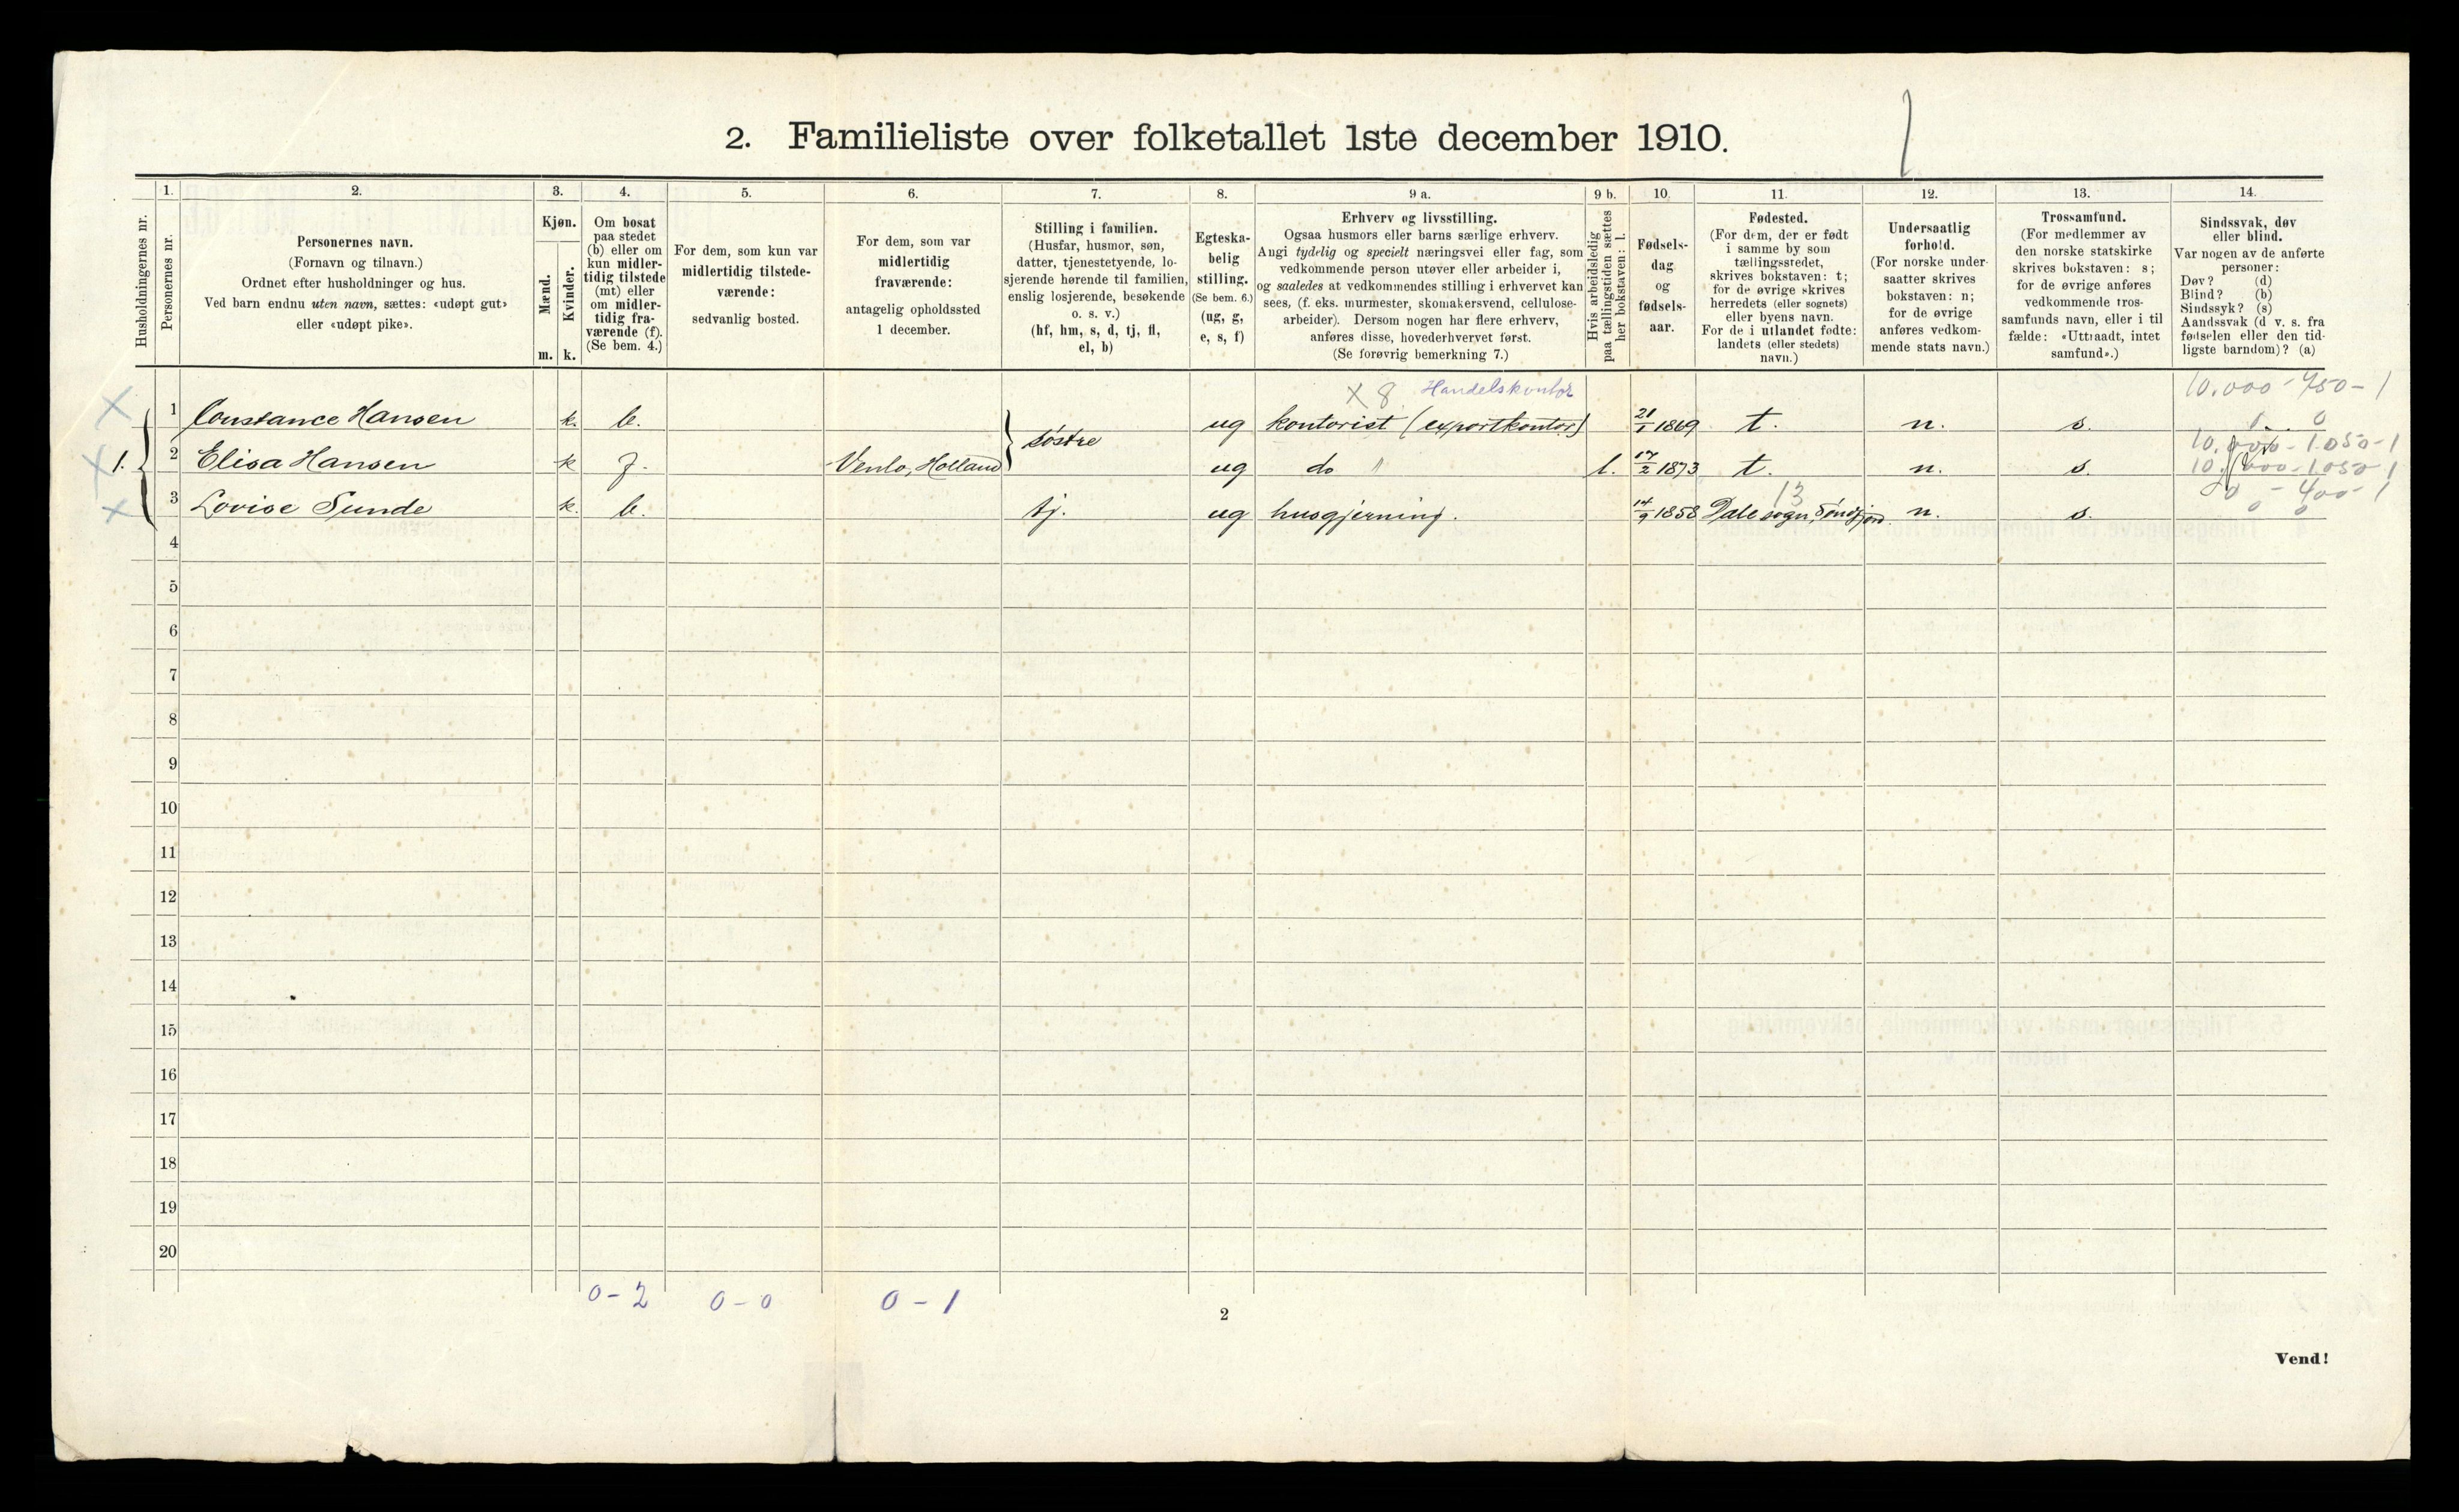 2. Familieliste over folketallet 1ste december 1910.
Husholdningernes nr.
1.
Personernes nr.
2.
Personernes navn.
(Fornavn og tilnavn.)
Ordnet efter husholdninger og hus.
Ved barn endnu uten navn, sættes: «udøpt gut»
eller «udøpt pike».
3.
Kjøn.
Mænd.
Kvinder.
m. k.
4.
Om bosat
paa stedet
(b) eller om
kun midler-
tidig tilstede
(mt) eller
om midler-
tidig fra-
værende (f).
(Se bem. 4.)
5.
For dem, som kun var
midlertidig tilstede-
værende:
sedvanlig bosted.
6.
For dem, som var
midlertidig
fraværende:
antagelig opholdssted
1 december.
7.
Stilling i familien.
(Husfar, husmor, søn,
datter, tjenestetyende, lo-
sjerende hørende til familien,
enslig losjerende, besøkende
o. s. v.)
(hf, hm, s, d, tj, fl,
el, b)
8.
Egteska-
belig
stilling.
(Se bem. 6.)
(ug, g,
e, s, f)
9 a.
Erhverv og livsstilling.
Ogsaa husmors eller barns særlige erhverv.
Angi tydelig og specielt næringsvei eller fag, som
vedkommende person utøver eller arbeider i,
og saaledes at vedkommendes stilling i erhvervet kan
sees, (f. eks. murmester, skomakersvend, cellulose-
arbeider). Dersom nogen har flere erhverv,
anføres disse, hovederhvervet først.
(Se forøvrig bemerkning 7.)
9 b.
Hvis arbeidsledig
paa tællingstiden sættes
her bokstaven: l.
10.
Fødsels-
dag
og
fødsels-
aar.
11.
Fødested.
(For dem, der er født
i samme by som
tællingsstedet,
skrives bokstaven: t;
for de øvrige skrives
herredets (eller sognets)
eller byens navn.
For de i utlandet fødte:
landets (eller stedets)
navn.)
12.
Undersaatlig
forhold.
(For norske under-
saatter skrives
bokstaven: n;
for de øvrige
anføres vedkom-
mende stats navn.)
13.
Trossamfund.
(For medlemmer av
den norske statskirke
skrives bokstaven: s;
for de øvrige anføres
vedkommende tros-
samfunds navn, eller i til
fælde: «Uttraadt, intet
samfund».)
14.
Sindssvak, døv
eller blind.
Var nogen av de anførte
personer:
Døv? (d)
Blind? (b)
Sindssyk? (s)
Aandssvak (d v. s. fra
fødselen eller den tid-
ligste barndom)? (a)
X 8 Handelskontor 10.000-750-1
1 Constance Hansen k. b. ug kontorist (exportkontor) 21/1 1869 t. n. s.
søstre
1. 2 Elisa Hansen k f. Venlo, Holland ug do " l. 17/2 1873 t. n. s. 10.000-1050-1
13 0-400-1
3 Lovise Sunde k. b. tj. ug husgjerning. 14/9 1858 Dale sogn, Søndfjord n. s. 0 0
4
5
6
7
8
9
10
11
12
13
14
15
16
17
18
19
20
0-2 0-0 0-1
2
Vend!